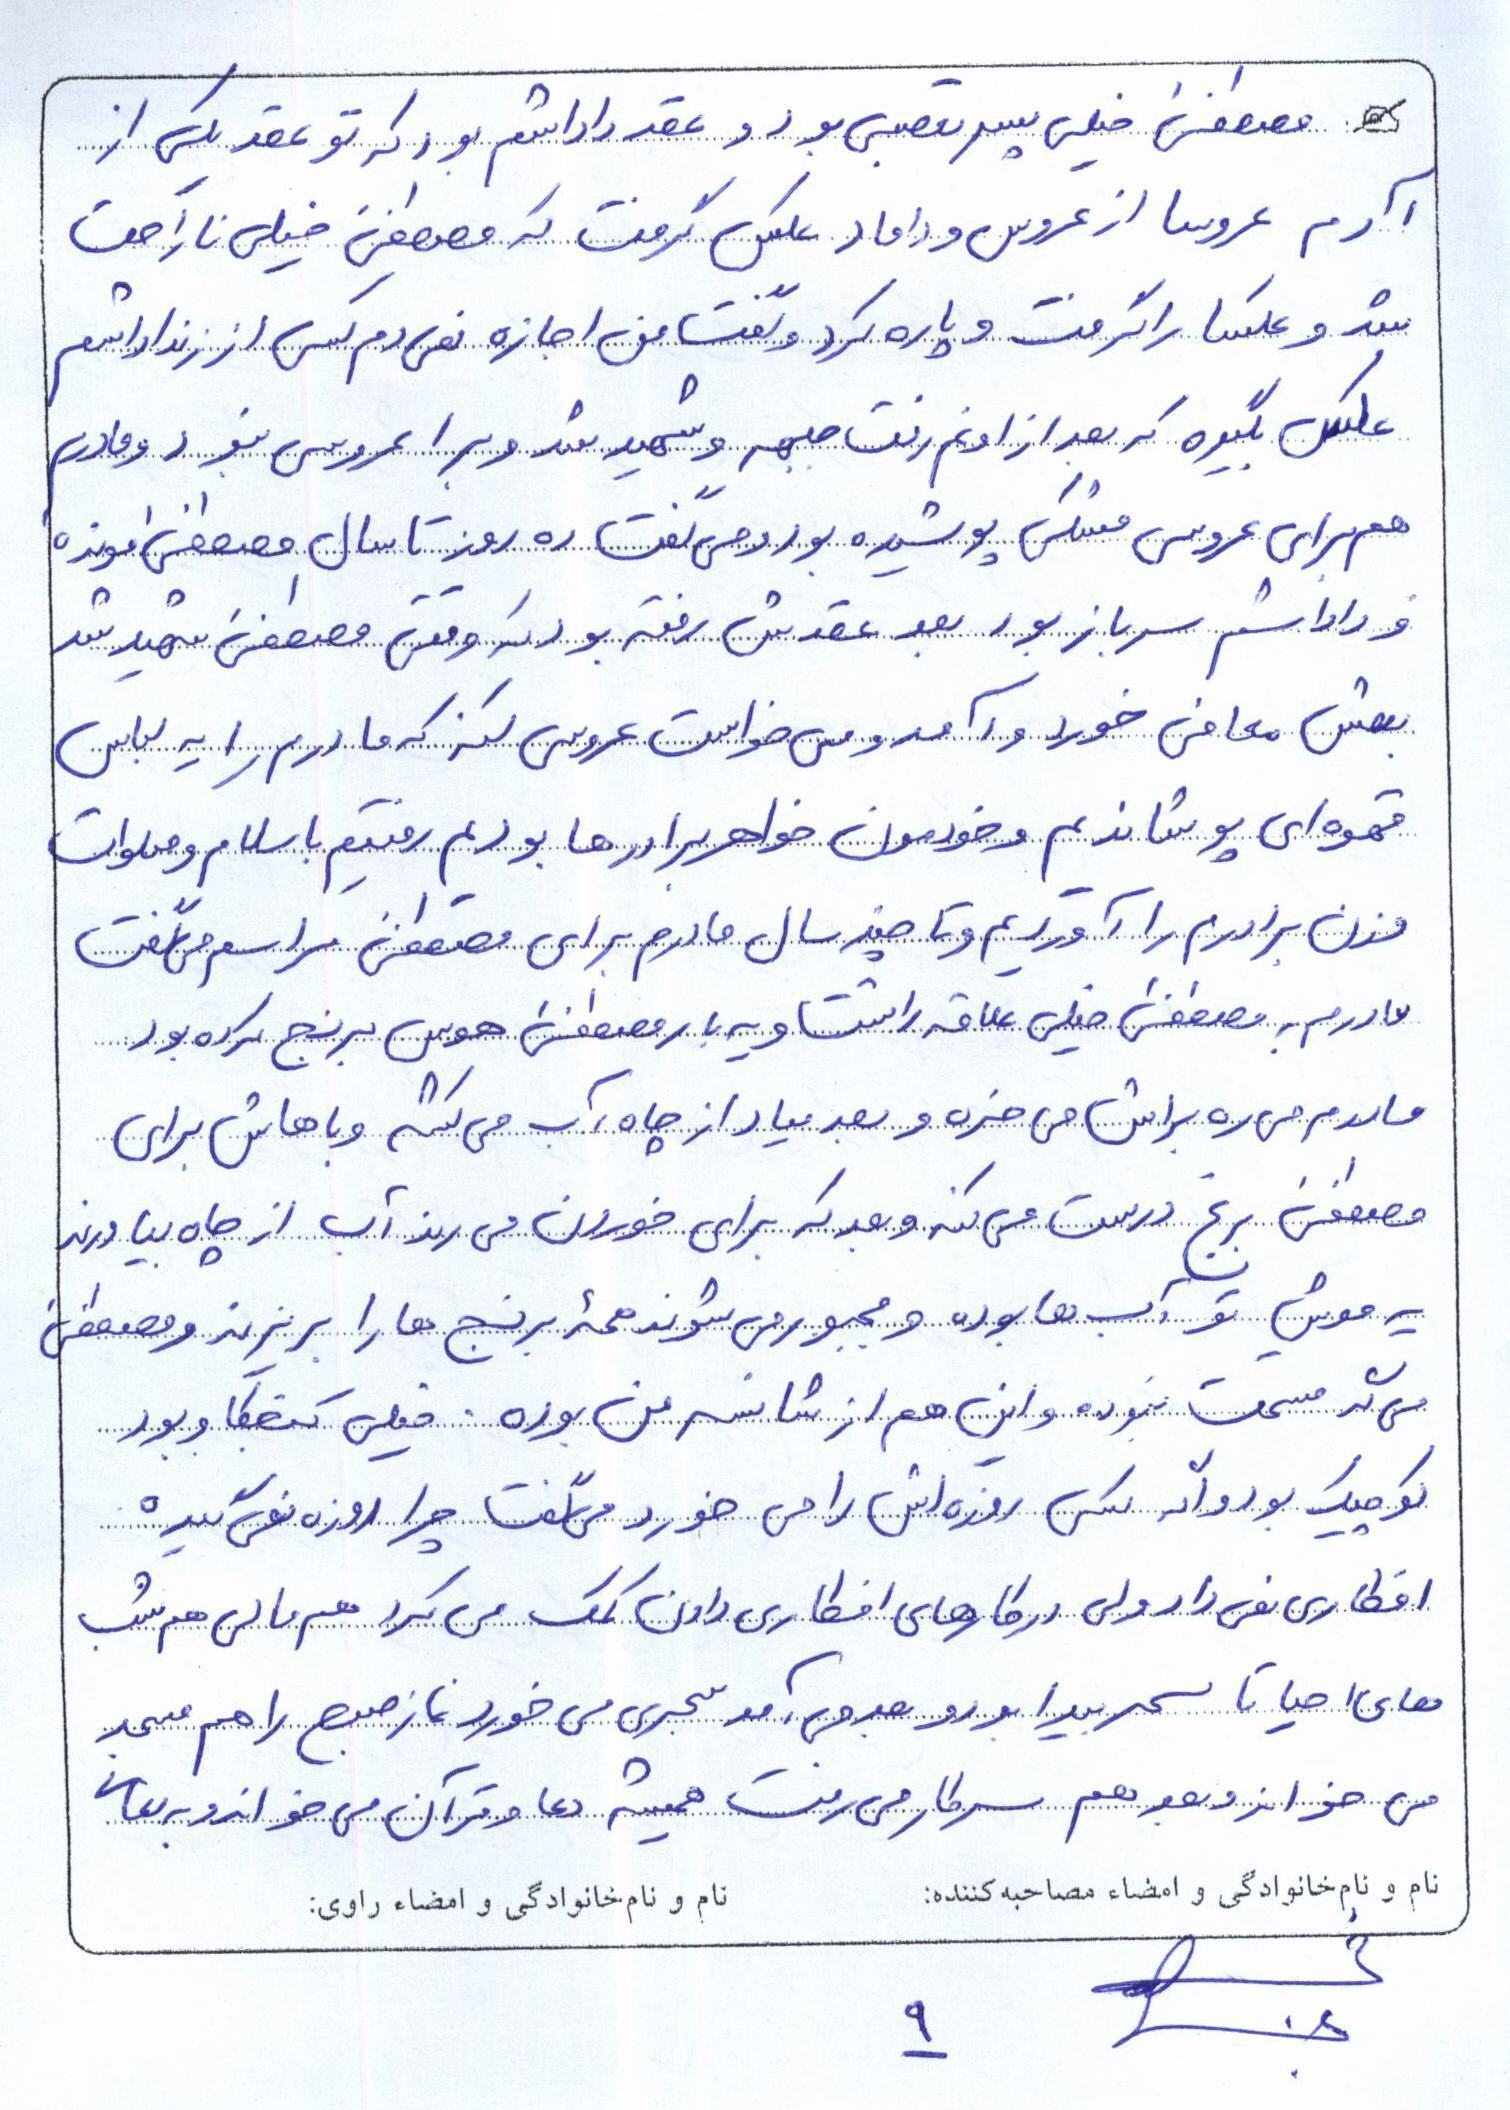 مصطفی خیلی پسر تعصبی بود و عقد داداشم بود که تو عقد یکی از
آدم عروسا از عروس و داماد عکس گرفت که مصطفی خیلی ناراحت
شد و عکسا را گرفت و پاره کرد و گفت من اجازه نمی دم کسی از زن داداشم
عکس بگیره که بعد از اونم رفت جبهه و شهید شد و برا عروسی نبود و مادرم
هم برای عروسی مشکی پوشیده بود و می گفت ده روز تا سال مصطفی مونده
و داداشم سرباز بود بعد عقدش رفته بود که وقتی مصطفی شهید شد
بهش معافی خورد و آمد و می خواست عروسی کنه که مادرم را یه لباس
قهوه ای پوشاندیم و خودمون خواهر برادرها بودیم رفتیم با سلام و صلوات
زن برادرم را آوردیم و تا چند سال مادرم برای مصطفی مراسم می گفت
مادرم به مصطفی خیلی علاقه داشت و یه بار مصطفی هوس برنج کرده بود
مادرم می ره براش می خره و بعد میاد از چاه آب می کشه و باهاش برای
مصطفی برنج درست می کنه و بعد که برای خوردن می رند آب از چاه بیاورند
یه موش تو آب ها بوده و مجبور می شوند همهٔ برنج ها را بریزند و مصطفی
می گه قسمت نبوده و این هم از شانس من بوده . خیلی کنجکاو بود
کوچیک بود و اگه کسی روزه اش را می خورد می گفت چرا روزه نمی گیره
افطاری نمی داد ولی در کارهای افطاری دادن کمک می کرد هم مالی هم شب
های احیا تا سحر بیدار بود و بعد می آمد سحری می خورد نماز صبح را هم مسجد
می خواند و بعد هم سر کار می رفت همیشه دعا و قرآن می خواند و به
نام و نام خانوادگی و امضاء مصاحبه کننده:
نام و نام خانوادگی و امضاء راوی:
۹